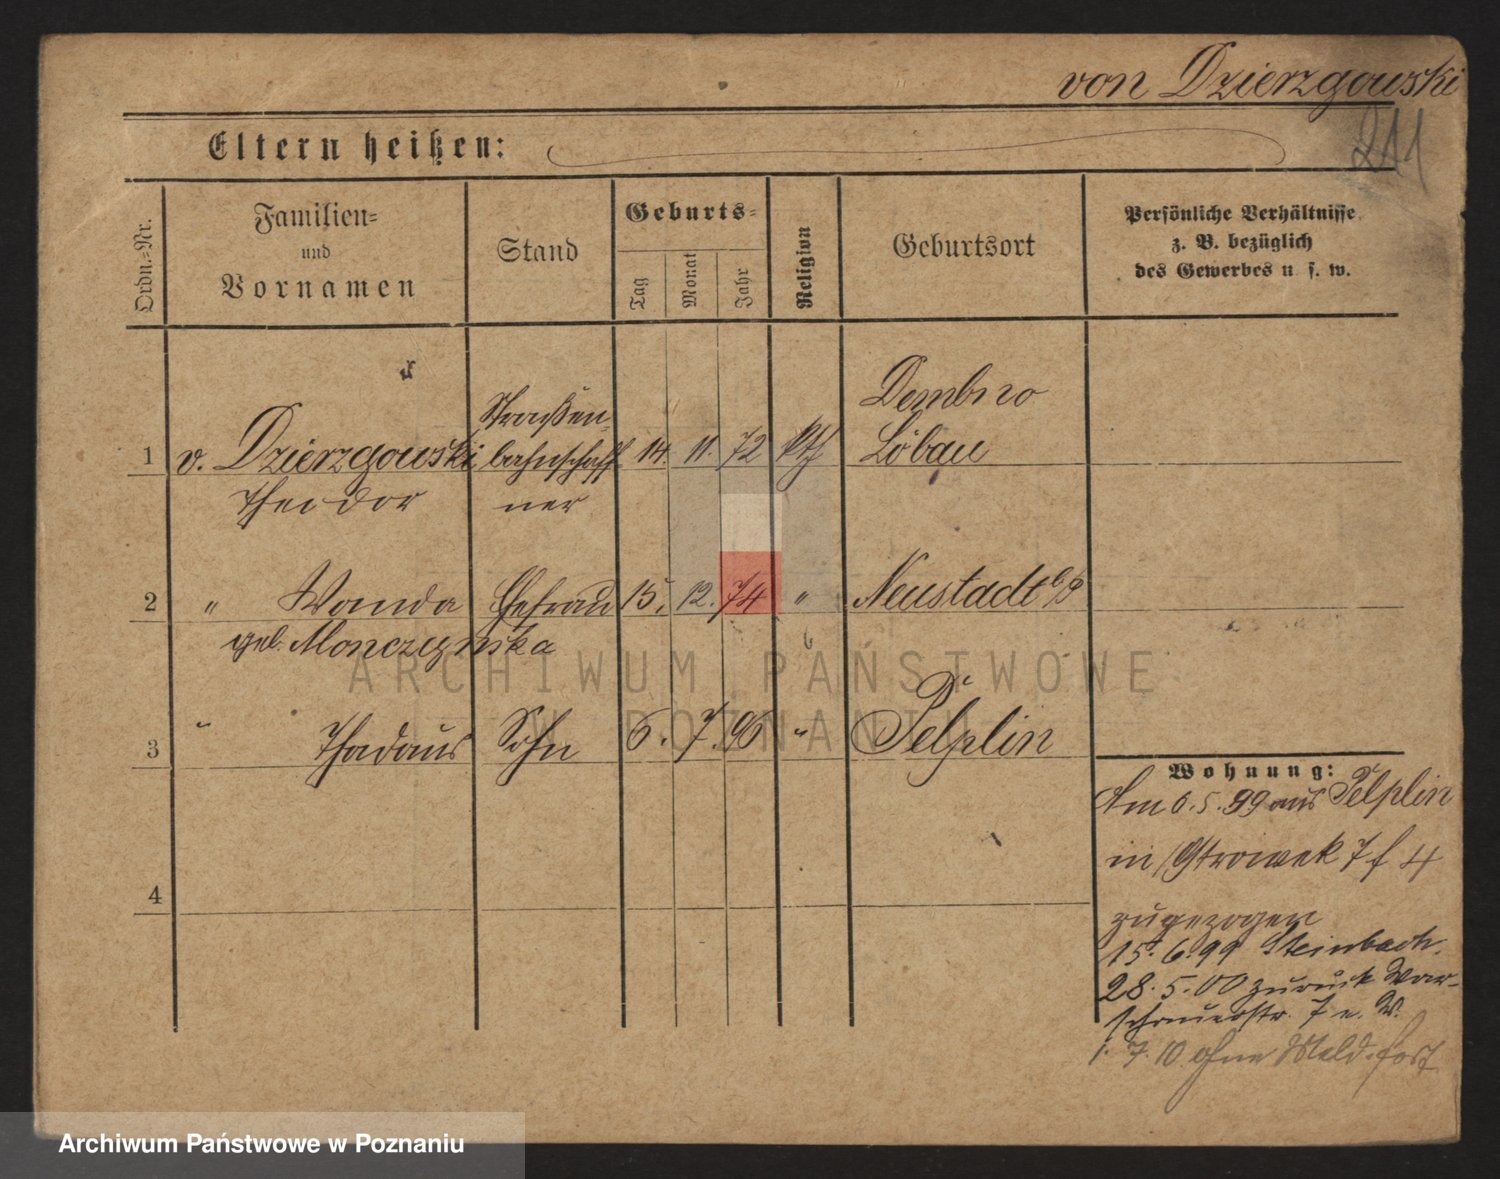 von Dzierzgowski
211
Eltern heißen:
Ordn.-Nr.
Familien-
und
Vornamen
Stand
Geburts-
Tag
Monat
Jahr
Religion
Geburtsort
Persönliche Verhältnisse
z. B. bezüglich
des Gewerbes u. s. w.
Straßen-
Dembno
1 v. Dzierzgowski bahnschaff 14. 11. 72 kth Löbau
Theodor ner
2 " Wanda Ehefrau 15. 12. 74 " Neustadt b/P
geb. Monczynska
3 " Thadäus Sohn 6. 7. 96 " Pelplin
4
Wohnung:
Am 6.5.99 aus Pelplin
in 4
zugezogen
15.6.99 Steinbach.
28.5.00 zurück War-
schauerstr. 7
1.7.10 ohne Meld. fort
ARCHIWUM PAŃSTWOWE
W POZNANIU
Archiwum Państwowe w Poznaniu